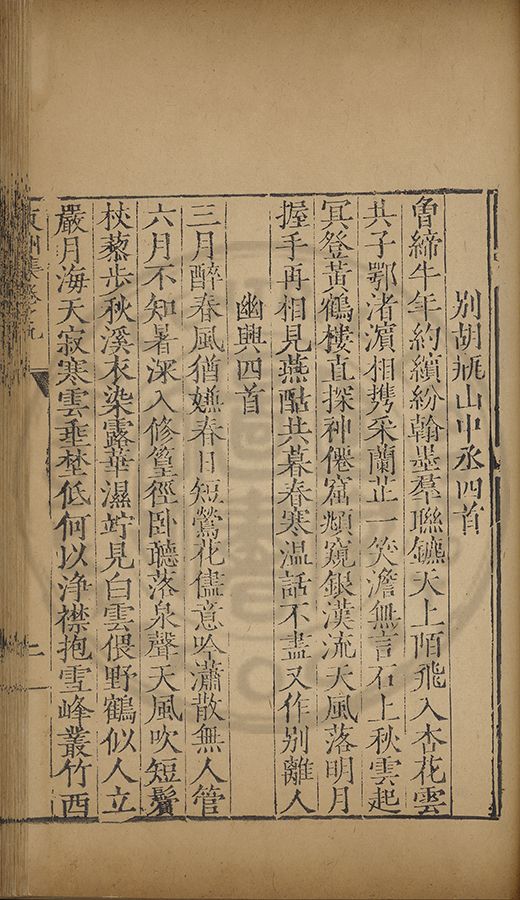 別胡瓶山中丞四首
曾締牛年約繽紛翰墨羣聯鑣天上陌飛入杏花雲
共子鄂渚濱相攜采蘭芷一笑澹無言石上秋雲起
冥登黃鶴樓直探神僊窟頫窺銀漢流天風落明月
握手再相見燕酤共暮春寒温話不盡又作別離人
幽興四首
三月醉春風猶嫌春日短鶯花儘意吟瀟散無人管
六月不知暑深入修篁徑卧聽落泉聲天風吹短鬢
杖藜步秋溪衣染露華濕竚見白雲偎野鶴似人立
嚴月海天寂寒雲垂埜低何以浄襟抱雪峰叢竹西
州集卷之九